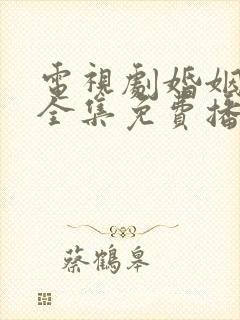 電視劇婚姻
全集免費播
蔡鶴皋